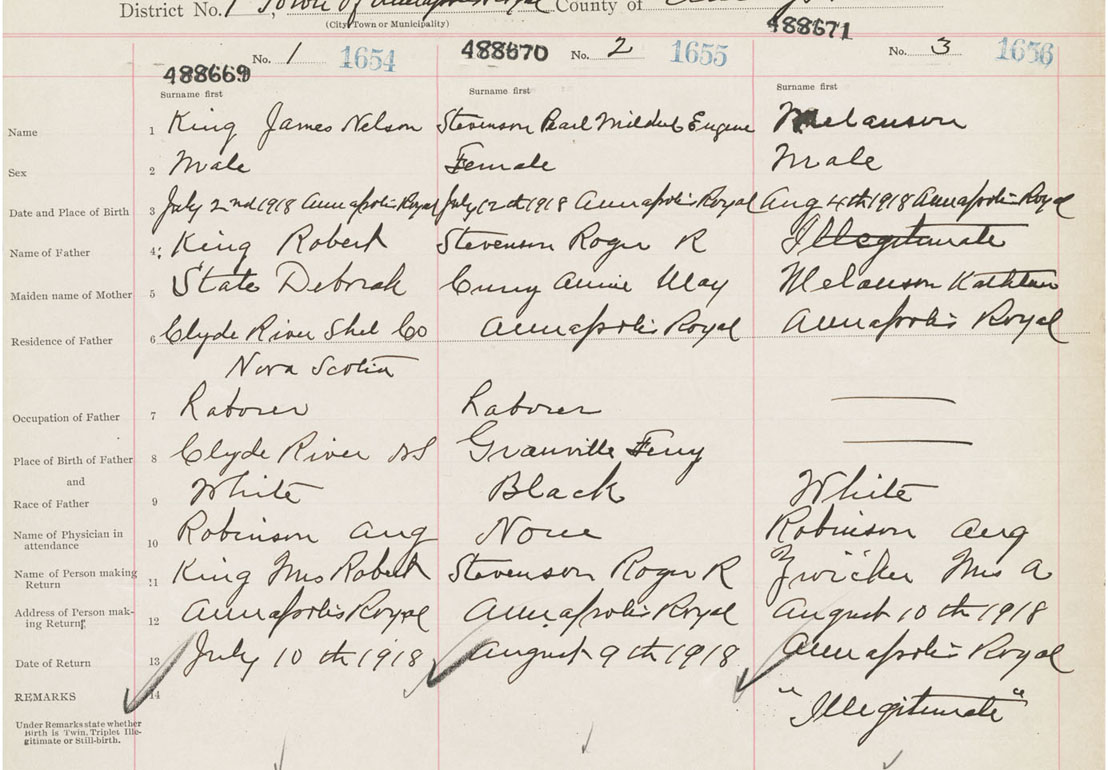 District No. 1 Town of Annapolis Royal County of
(City Town or Municipality)
488669 No. 1 1654 488670 No. 2 1655 488671 No. 3 1656
Surname first Surname first Surname first
Name 1 King James Nelson Stevenson Pearl Mildred Eugene Melanson
Sex 2 Male Female Male
Date and Place of Birth 3 July 2nd 1918 Annapolis Royal July 12th 1918 Annapolis Royal Aug 4th 1918 Annapolis Royal
Name of Father 4 King Robert Stevenson Roger R Illegitimate
Maiden name of Mother 5 State Deborah Annie May Melanson Kathleen
Residence of Father 6 Clyde River Shel Co Annapolis Royal Annapolis Royal
Nova Scotia
Occupation of Father 7 Laborer Laborer
Place of Birth of Father 8 Clyde River NS Granville Ferry
and
Race of Father 9 White Black White
Name of Physician in attendance 10 Robinson Aug None Robinson Aug
Name of Person making Return 11 King Mrs Robert Stevenson Roger R Zwicker Mrs A
Address of Person making Return 12 Annapolis Royal Annapolis Royal August 10th 1918
Date of Return 13 July 10th 1918 August 9th 1918 Annapolis Royal
REMARKS 14 "Illegitimate"
Under Remarks state whether
Birth is Twin, Triplet Ille-
gitimate or Still-birth.